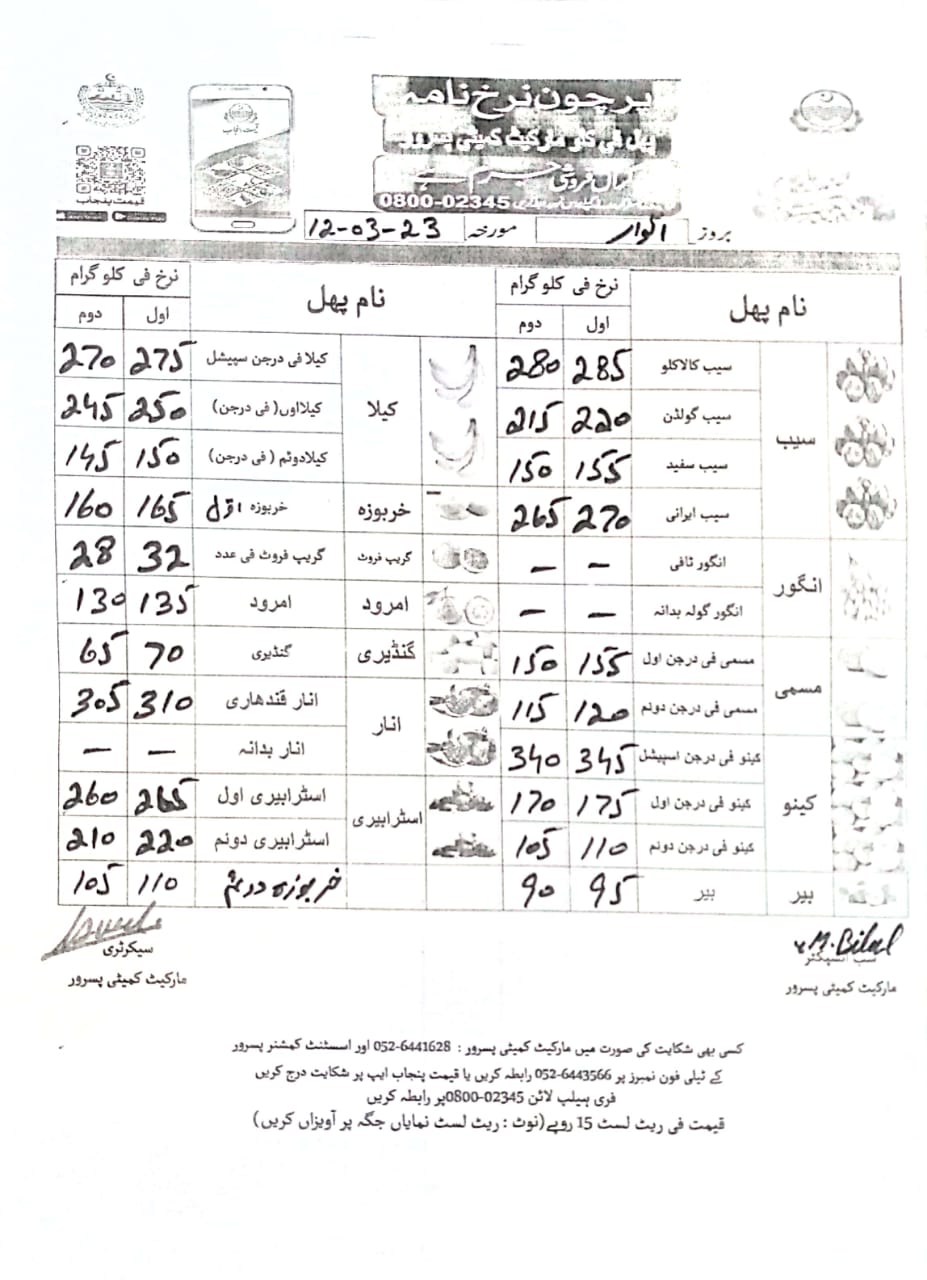 پرچون نرخ نامہ
پھل فی کلو مارکیٹ کمیٹی پسرور
گراں فروشی جرم ہے
0800-02345
قیمت پنجاب
بروز اتوار مورخہ 12-03-23
نام پھل نرخ فی کلو گرام نام پھل نرخ فی کلو گرام
اول دوم اول دوم
سیب سیب کالاکلو 285 280 کیلا کیلا فی درجن سپیشل 275 270
سیب گولڈن 220 215 کیلااوں( فی درجن) 250 245
سیب سفید 155 150 کیلادوئم ( فی درجن) 150 145
سیب ایرانی 270 265 خربوزہ خربوزہ اول 165 160
انگور انگور ٹافی - - گریپ فروٹ گریپ فروٹ فی عدد 32 28
انگور گولہ بدانہ - - امرود امرود 135 130
مسمی مسمی فی درجن اول 155 150 گنڈیری گنڈیری 70 65
مسمی فی درجن دوئم 120 115 انار انار قندھاری 310 305
کینو کینو فی درجن اسپیشل 345 340 انار بدانہ - -
کینو فی درجن اول 175 170 اسٹرابیری اسٹرابیری اول 265 260
کینو فی درجن دوئم 110 105 اسٹرابیری دوئم 220 210
بیر بیر 95 90 خربوزہ دوئم 110 105
M. Bilal
سب انسپکٹر سیکرٹری
مارکیٹ کمیٹی پسرور مارکیٹ کمیٹی پسرور
کسی بھی شکایت کی صورت میں مارکیٹ کمیٹی پسرور : 052-6441628 اور اسسٹنٹ کمشنر پسرور
کے ٹیلی فون نمبرز پر 052-6443566 رابطہ کریں یا قیمت پنجاب ایپ پر شکایت درج کریں
فری ہیلپ لائن 02345-0800پر رابطہ کریں
قیمت فی ریٹ لسٹ 15 روپے(نوٹ : ریٹ لسٹ نمایاں جگہ پر آویزاں کریں)